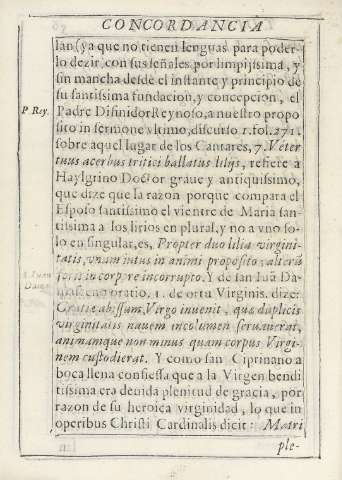 CONCORDANCIA
lan (ya que no tienen lenguas para poder-
lo dezir, con sus señales por limpissima, y
sin mancha desde el instante y principio de
su santissima fundacion, y concepcion, el
P. Rey. Padre Difinidor Reynoso, a nuestro propo
sito in sermone vltimo, discurso 1. fol. 271.
sobre aquel lugar de los Cantares, 7. Veter
tuus acerbus tritici ballatus lilijs, refiere a
Haylgrino Doctor graue y antiquissimo,
que dize que la razon porque compara el
Esposo santissimo el vientre de Maria san-
tissima a los lirios en plural, y no a vno so-
lo en singular, es, Propter duo lilia virgini-
tatis, vnam intus in animi proposito; alterũ
foris in corpore incorrupto. Y de san Iuã Da-
masceno oratio. 1. de ortu Virginis. dize:
Gratiæ abissam, Virgo inuenit, quæ duplicis
virginitatis nauem incolumen seruauerat,
animamque non minus quam corpus Virgi-
nem custodierat. Y como san Cipriano a
boca llena confiessa que a la Virgen bendi
tissima era deuida plenitud de gracia, por
razon de su heroica virginidad, lo que in
operibus Christi Cardinalis dicit: Matri
ple-